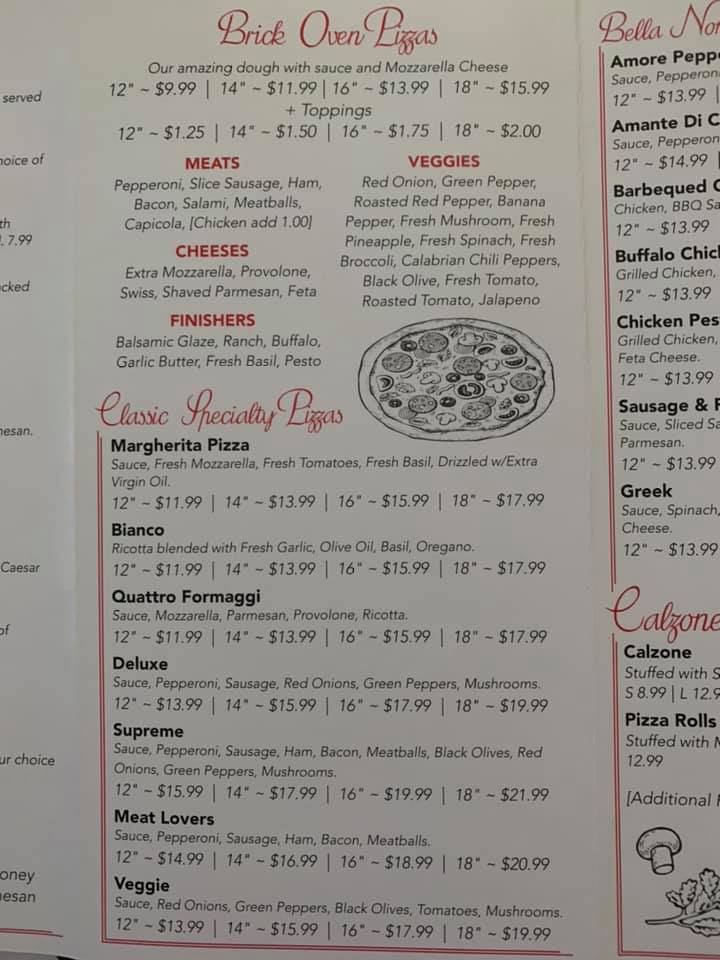 served
hoice of
th
. 7.99
cked
nesan.
Caesar
of
ur choice
oney
mesan
Brick Oven Pizzas
Our amazing dough with sauce and Mozzarella Cheese
12" ~ $9.99 | 14" ~ $11.99 | 16" ~ $13.99 | 18" ~ $15.99
+ Toppings
12" ~ $1.25 | 14" ~ $1.50 | 16" ~ $1.75 | 18" ~ $2.00
MEATS
Pepperoni, Slice Sausage, Ham,
Bacon, Salami, Meatballs,
Capicola, [Chicken add 1.00]
CHEESES
Extra Mozzarella, Provolone,
Swiss, Shaved Parmesan, Feta
FINISHERS
Balsamic Glaze, Ranch, Buffalo,
Garlic Butter, Fresh Basil, Pesto
VEGGIES
Red Onion, Green Pepper,
Roasted Red Pepper, Banana
Pepper, Fresh Mushroom, Fresh
Pineapple, Fresh Spinach, Fresh
Broccoli, Calabrian Chili Peppers,
Black Olive, Fresh Tomato,
Roasted Tomato, Jalapeno
Classic Specialty Pizzas
Margherita Pizza
Sauce, Fresh Mozzarella, Fresh Tomatoes, Fresh Basil, Drizzled w/Extra
Virgin Oil.
12" ~ $11.99 | 14" ~ $13.99 | 16" ~ $15.99 | 18" ~ $17.99
Bianco
Ricotta blended with Fresh Garlic, Olive Oil, Basil, Oregano.
12" ~ $11.99 | 14" ~ $13.99 | 16" ~ $15.99 | 18" ~ $17.99
Quattro Formaggi
Sauce, Mozzarella, Parmesan, Provolone, Ricotta.
12" ~ $11.99 | 14" ~ $13.99 | 16" ~ $15.99 | 18" ~ $17.99
Deluxe
Sauce, Pepperoni, Sausage, Red Onions, Green Peppers, Mushrooms.
12" ~ $13.99 | 14" ~ $15.99 | 16" ~ $17.99 | 18" ~ $19.99
Supreme
Sauce, Pepperoni, Sausage, Ham, Bacon, Meatballs, Black Olives, Red
Onions, Green Peppers, Mushrooms.
12" ~ $15.99 | 14" ~ $17.99 | 16" ~ $19.99 | 18" ~ $21.99
Meat Lovers
Sauce, Pepperoni, Sausage, Ham, Bacon, Meatballs.
12" ~ $14.99 | 14" ~ $16.99 | 16" ~ $18.99 | 18" ~ $20.99
Veggie
Sauce, Red Onions, Green Peppers, Black Olives, Tomatoes, Mushrooms.
12" ~ $13.99 | 14" ~ $15.99 | 16" ~ $17.99 | 18" ~ $19.99
Bella Nor
Amore Peppe
Sauce, Pepperoni
12" ~ $13.99 |
Amante Di C
Sauce, Pepperon
12" ~ $14.99 |
Barbequed C
Chicken, BBQ Sa
12" ~ $13.99
Buffalo Chick
Grilled Chicken,
12" ~ $13.99
Chicken Pes
Grilled Chicken,
Feta Cheese.
12" ~ $13.99
Sausage & P
Sauce, Sliced Sa
Parmesan.
12" ~ $13.99
Greek
Sauce, Spinach,
Cheese.
12" ~ $13.99
Calzone
Calzone
Stuffed with S
S 8.99 | L 12.9
Pizza Rolls
Stuffed with M
12.99
[Additional